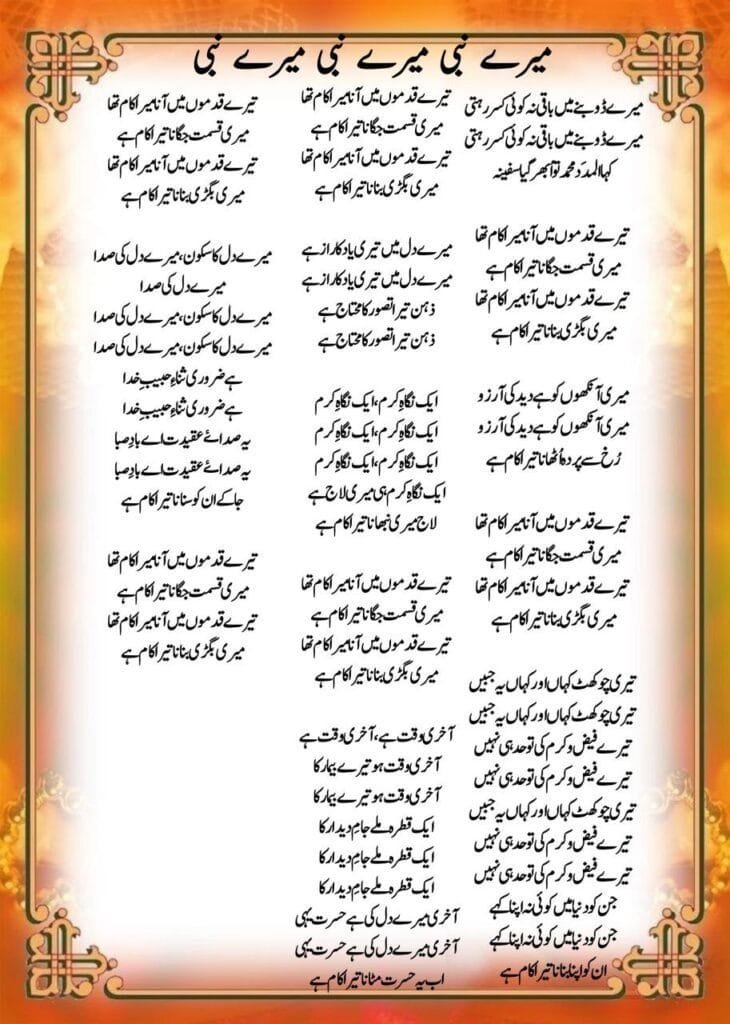 میرے نبی میرے نبی میرے نبی
میرے ڈوبنے میں باقی نہ کوئی کسر رہتی
میرے ڈوبنے میں باقی نہ کوئی کسر رہتی
کہا المدَد محمد تو ابھر گیا سفینہ
تیرے قدموں میں آنا میرا کام تھا
میری قسمت جگانا تیرا کام ہے
تیرے قدموں میں آنا میرا کام تھا
میری بگڑی بنانا تیرا کام ہے
میری آنکھوں کو ہے دید کی آرزو
میری آنکھوں کو ہے دید کی آرزو
رُخ سے پردہ اُٹھانا تیرا کام ہے
تیرے قدموں میں آنا میرا کام تھا
میری قسمت جگانا تیرا کام ہے
تیرے قدموں میں آنا میرا کام تھا
میری بگڑی بنانا تیرا کام ہے
تیری چوکھٹ کہاں اور کہاں یہ جبیں
تیری چوکھٹ کہاں اور کہاں یہ جبیں
تیرے فیض و کرم کی تو حد ہی نہیں
تیرے فیض و کرم کی تو حد ہی نہیں
تیری چوکھٹ کہاں اور کہاں یہ جبیں
تیرے فیض و کرم کی تو حد ہی نہیں
تیرے فیض و کرم کی تو حد ہی نہیں
جن کو دنیا میں کوئی نہ اپنا کہے
جن کو دنیا میں کوئی نہ اپنا کہے
ان کو اپنا بنانا تیرا کام ہے
تیرے قدموں میں آنا میرا کام تھا
میری قسمت جگانا تیرا کام ہے
تیرے قدموں میں آنا میرا کام تھا
میری بگڑی بنانا تیرا کام ہے
میرے دل میں تیری یاد کا راز ہے
میرے دل میں تیری یاد کا راز ہے
ذہن تیرا تصور کا محتاج ہے
ذہن تیرا تصور کا محتاج ہے
ایک نگاہِ کرم، ایک نگاہِ کرم
ایک نگاہِ کرم، ایک نگاہِ کرم
ایک نگاہِ کرم، ایک نگاہِ کرم
ایک نگاہِ کرم ہی میری لاج ہے
لاج میری نبھانا تیرا کام ہے
تیرے قدموں میں آنا میرا کام تھا
میری قسمت جگانا تیرا کام ہے
تیرے قدموں میں آنا میرا کام تھا
میری بگڑی بنانا تیرا کام ہے
آخری وقت ہے، آخری وقت ہے
آخری وقت ہو تیرے بیمار کا
آخری وقت ہو تیرے بیمار کا
ایک قطرہ ملے جامِ دیدار کا
ایک قطرہ ملے جامِ دیدار کا
ایک قطرہ ملے جامِ دیدار کا
آخری میرے دل کی ہے حسرت یہی
آخری میرے دل کی ہے حسرت یہی
اب یہ حسرت مٹانا تیرا کام ہے
تیرے قدموں میں آنا میرا کام تھا
میری قسمت جگانا تیرا کام ہے
تیرے قدموں میں آنا میرا کام تھا
میری بگڑی بنانا تیرا کام ہے
میرے دل کا سکون، میرے دل کی صدا
میرے دل کی صدا
میرے دل کا سکون، میرے دل کی صدا
میرے دل کا سکون، میرے دل کی صدا
ہے ضروری ثناءِ حبیبِ خدا
ہے ضروری ثناءِ حبیبِ خدا
یہ صدائے عقیدت اے بادِ صبا
یہ صدائے عقیدت اے بادِ صبا
جا کے ان کو سنانا تیرا کام ہے
تیرے قدموں میں آنا میرا کام تھا
میری قسمت جگانا تیرا کام ہے
تیرے قدموں میں آنا میرا کام تھا
میری بگڑی بنانا تیرا کام ہے